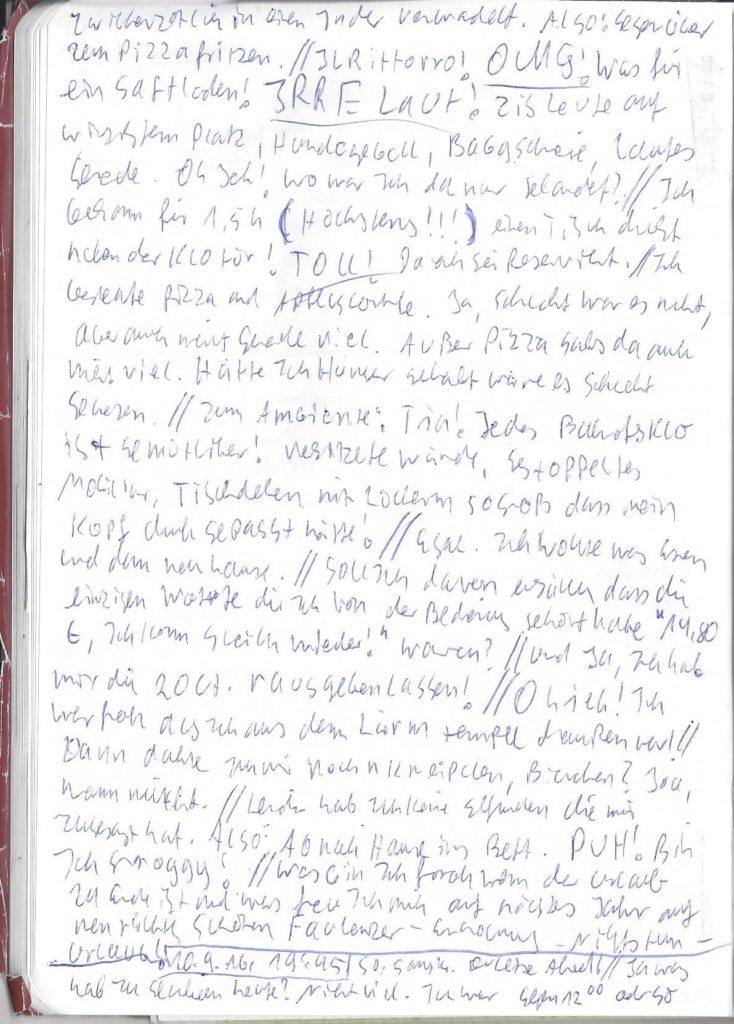 in einen Inder verwandelt. Also: Gegenüber
zum Pizzafritzen. // IL Rittorro! OMG! Was für
ein Saftladen! IRRE LAUT! zig Leute auf
Platz, Hundegebell, Babygschrei, lautes
Gerede. Oh Jeh! Wo war ich da nur gelandet? // Ich
bekam für 1,5h (Höchstens!!!) einen Tisch dicht
neben der KLOtür! TOLL! Da sei Reserviert. // Ich
bestellte Pizza und Apfelschorle. Ja, schlecht war es nicht,
aber auch nicht gerade viel. Außer Pizza gabs da auch
nicht viel. Hätte ich Hunger gehabt wäre es schlecht
gewesen. // Zum Ambiente: Tja! Jedes BahnhofsKLO
ist gemütlicher! wände,
Mobiliar, Tischdecken mit Löchern so groß dass mein
Kopf durch gepasst hätte! // Egal. Ich wollte was essen
und dann nach hause. // Soll ich davon erzählen dass die
einzigen Worte die ich von der Bedienung gehört habe "14,80
€, Ich komm gleich wieder!" waren? // Und Ja, Ich hab
mir die 20Ct. rausgeben lassen! // Ohjeh! Ich
war froh das ich aus dem Lärm tempel draußen war! //
Dann dachte ich mir noch n Kneipchen, Bierchen? Joa,
warum nicht. // Leider hab ich keine gefunden die mir
zugesagt hat. Also: Ab nach Hause ins Bett. PUH! Bin
Ich groggy! // Was bin ich froh wenn der Urlaub
zu Ende ist und was freu ich mich auf nächstes Jahr auf
nen richtig schönen Faulenzer - - nichtstun -
Urlaub! 10.9.16, 19:45 / so, Abend // Ja was
hab ich heute? Nicht viel. Ich war gegen 12⁰⁰ oder so